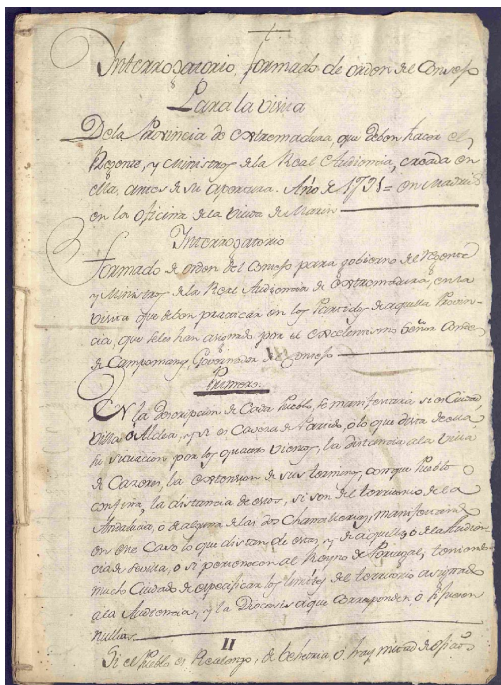 Interrogatorio, formado de orden del Consejo
Para la visita
De la Provincia de extremadura, que deben hacer el
Regente, y Ministros de la Real Audiencia, creada en
ella, antes de su apertura. Año de 1791 = en Madrid
en la oficina de la Viuda de Marin
Interrogatorio
formado de orden del Consejo para gobierno del Regente
y Ministros de la Real Audiencia de extremadura, en la
visita que deben practicar en los Partidos de aquella Provin-
cia, que seles han asignado por el excelentisimo Señor Conde
de Campomanes, Governador del Consejo
Primero.
En la descripcion de Cada Pueblo, se manifestará si es Ciudad
Villa, ó Aldea, y si es Cavera de Partido, o lo que dista de ella
su situacion por los quatro vientos, la distancia a la villa
de Cazeres, la extension de sus terminos, con que Pueblo
confina, la distancia de estos, si son del territorio de la
Andalucia, o de alguna de las dos Chancillerias, manifestando
en este Caso lo que distan de estas, y de aquellas o de la Audien-
cia de Sevilla, o si pertenecen al Reyno de Portugal, teniendo
mucho Cuidado de especificar los limites del territorio asignado
a la Audiencia, y la Diocesis a que corresponden ó si fueren
nullius.
II
Si el Pueblo es Realengo, de behetria ó hay mitad de oficios